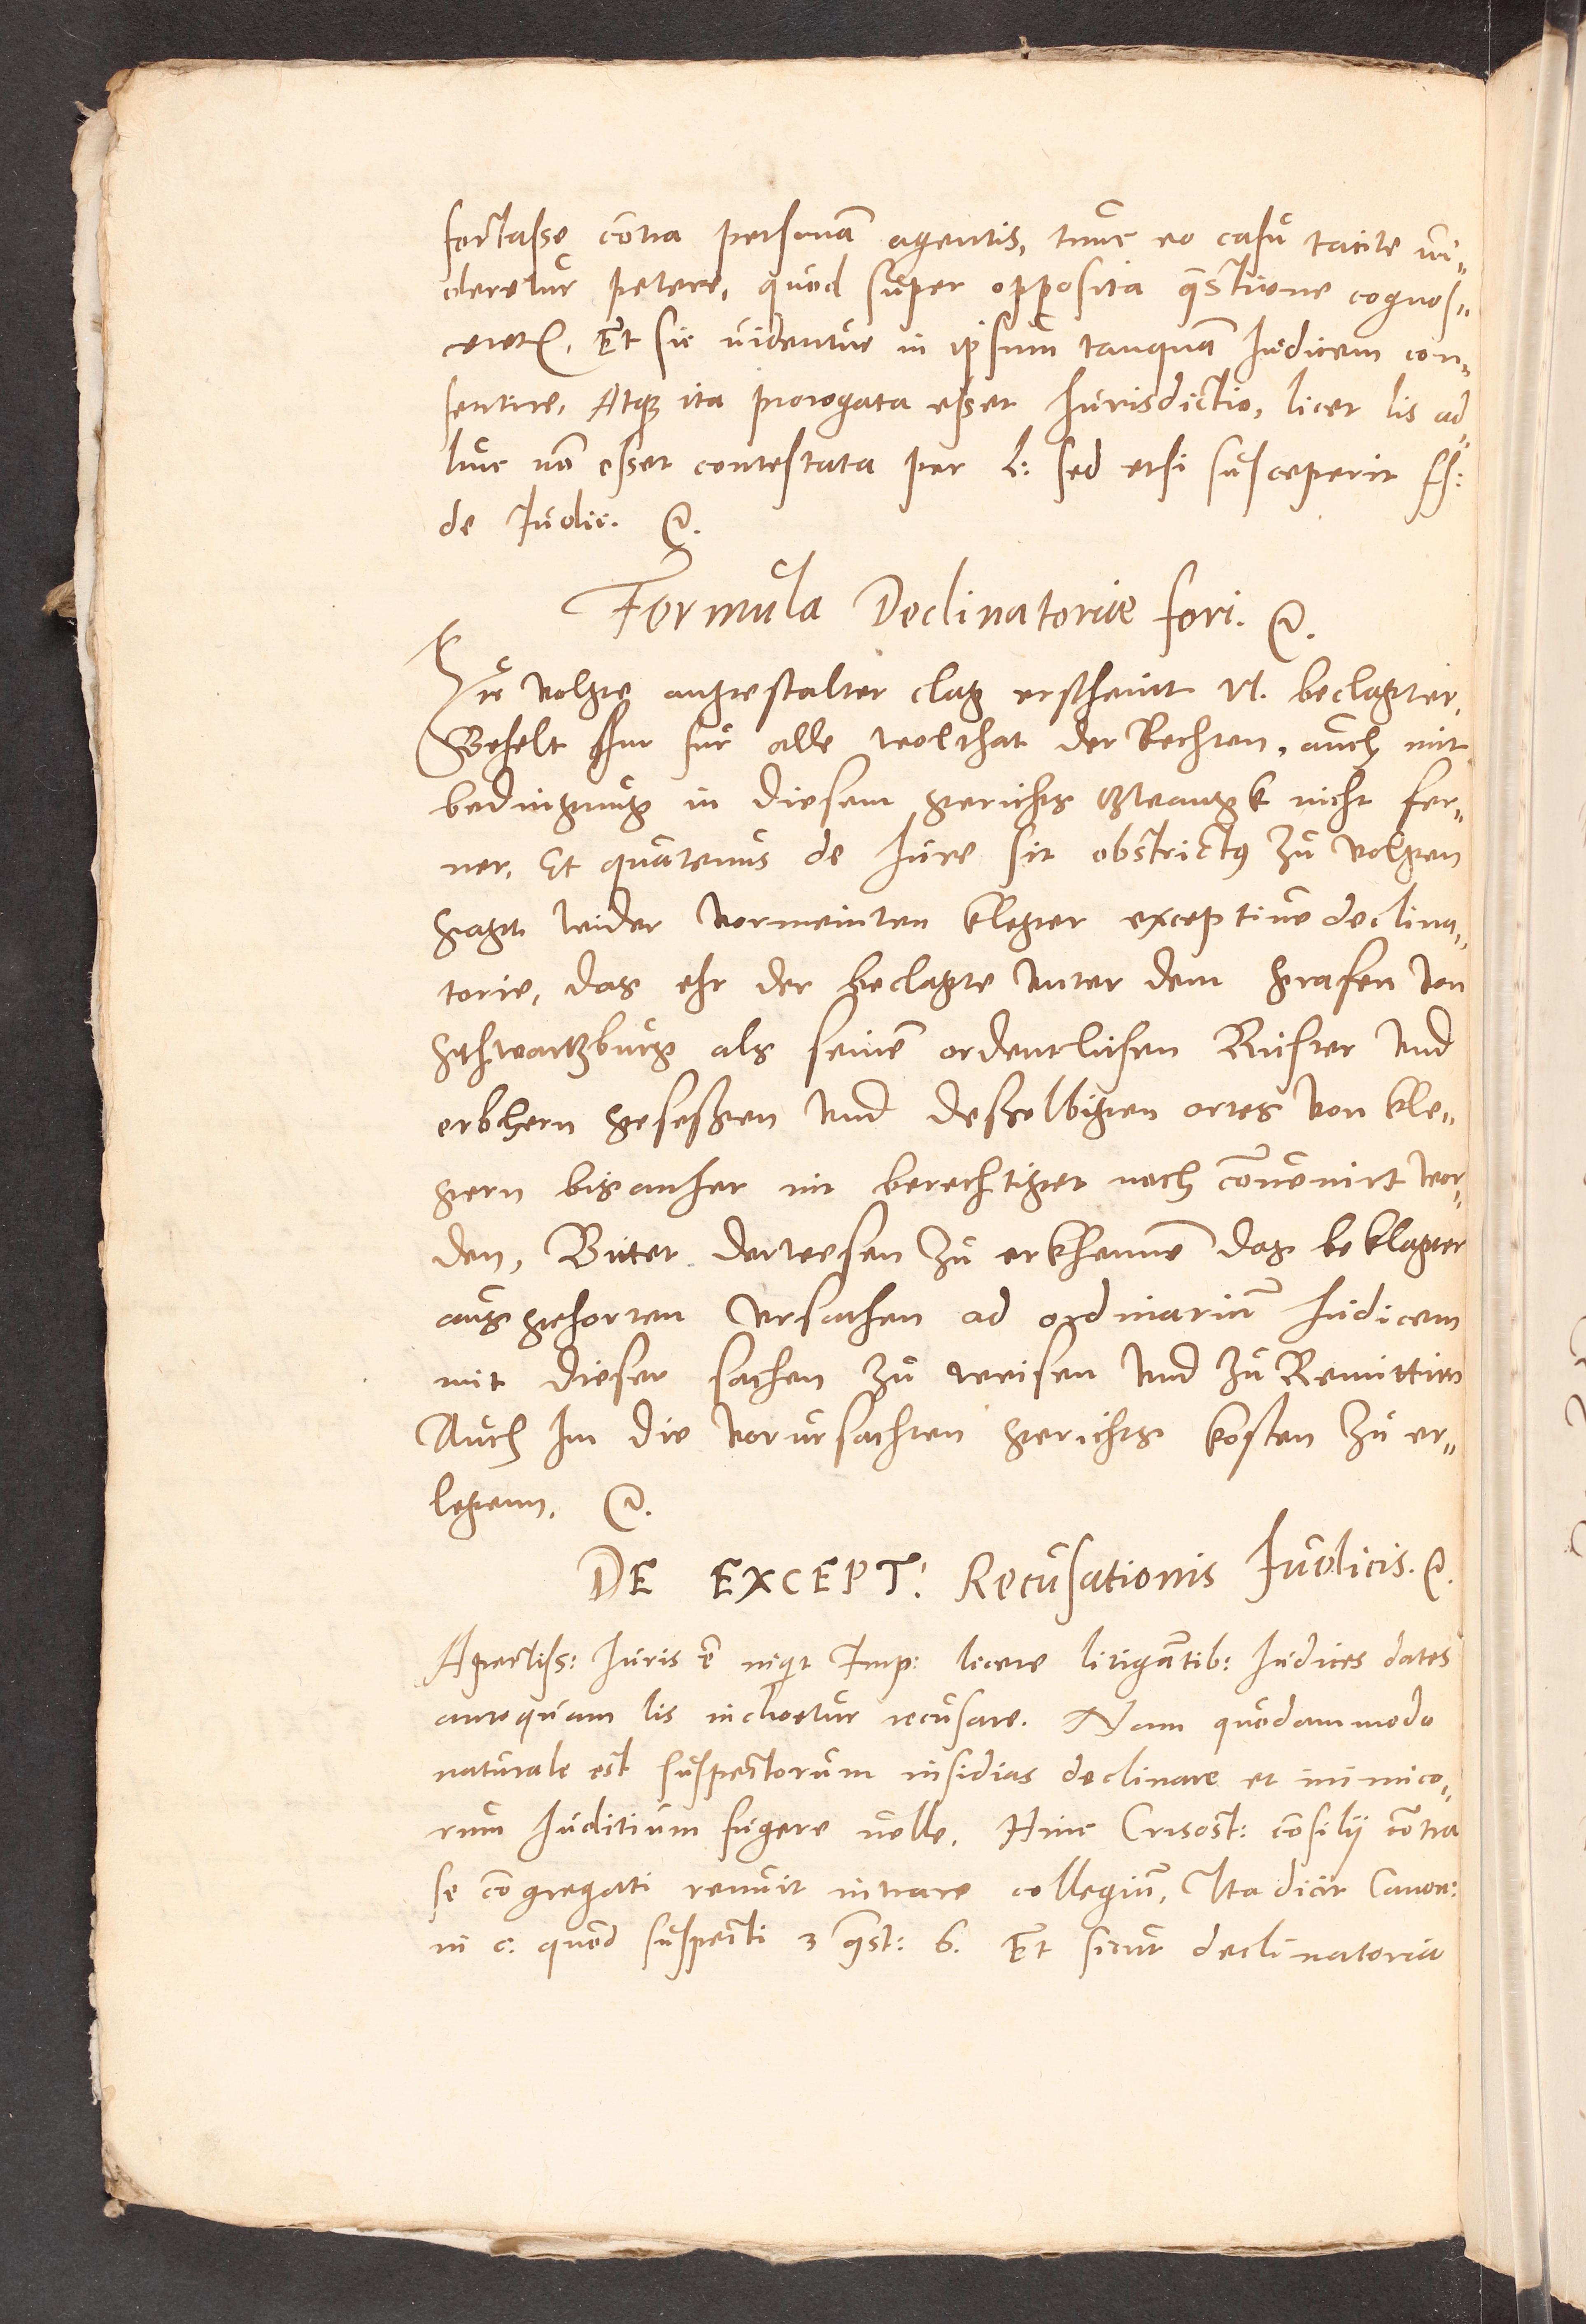 fortasse cōtra personā agentis, tunc eo casu tacite vi„
deretur petere, quod super opposita qęstione cognos„
ceretur. Et sic videntur in ipsum tanquā Iudicem con„
sentire, Atq; ita prorogata esset Iurisdictio, licet lis ad„
huc nō esset contestata per l: sed etsi susceperit ff:
de Iudic. &.
Formula Declinatoriae fori. &.
Zu volge angestalter clag erscheint N. beclagter,
Behelt Ihm fur alle wolthat der Rechten, auch mit
bedingung in diesem gerichts nicht fer„
ner, Et quatenus de Iure sit obstrictus zu volgen
sagt wider vormeinten kleger exceptiue declina„
torie, das ehr der beclagte unter dem Grafen von
Schwartzburg als seinē ordentlichen Richter vnd
erbhern gesessen vnd desselbigen ortes von kle„
gern bisanher nit berechtiget noch cōuenirt wor„
den, Bittet derwegen zu erkhennē das beklagter
aus gehorten vrsachen ad ordinariū Iudicem
mit dieser sachen zu weisen vnd zu Remittirn
Auch Im die vorursachten gerichts kosten zu er„
legenn. &.
DE EXCEPT: Recusationis Iudicis. &.
Apertiss: Iuris ē inqit Imp: licere litigātib: Iudices dates
antequam lis inchoetur recusare. Nam quodammodo
naturale est suspectorum insidias declinare et inimico„
rum Iuditium fugere velle. Hinc Crisost: cōsilij cōtra
se cōgregati renuit intrare collegiū, Ita dicit Canon:
in c: quod suspecti 3 qęst: 6. Et sicut declinatoria